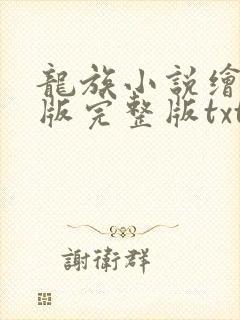 龍族小説繪
版完整版txt
謝衛群